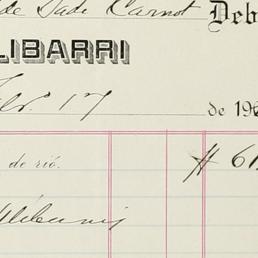 de Sadi Carnot Deb
LIBARRI
Feb. 17 de 196
de rió. # 61
Ulibarri